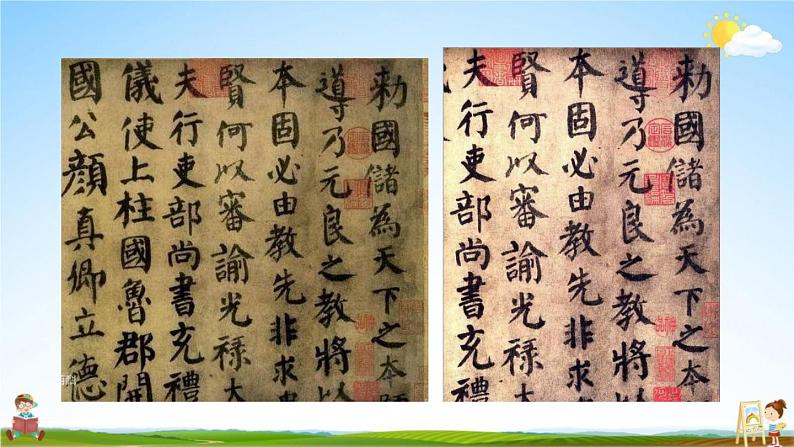 勅國儲為天下之本
導乃元良之教將以
本固必由教先非求
賢何以審諭光祿大
夫行吏部尚書充禮
儀使上柱國魯郡開
國公顏真卿立德
勅國儲為天下之本
導乃元良之教將以
本固必由教先非求
賢何以審諭光祿大
夫行吏部尚書充禮